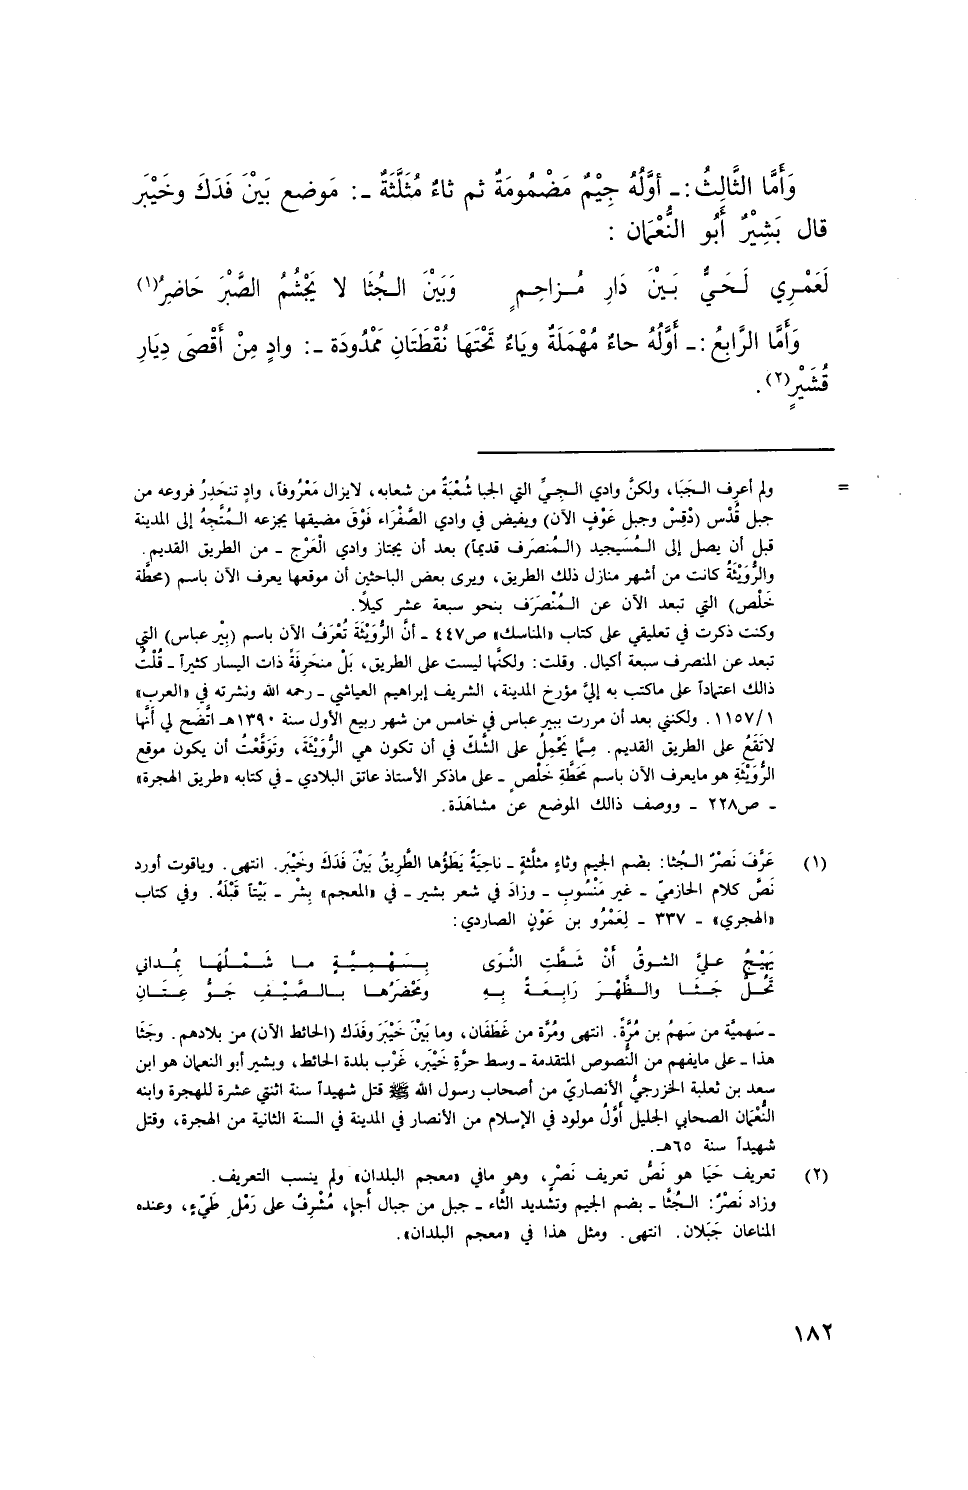 وَأَمَّا الثَّالِثُ :ـ أوَّلُهُ جِيْمٌ مَضْمُومَةٌ ثم ثاءٌ مُثَلَّثَةٌ ـ: مَوضع بَيْنَ فَدَكَ وخَيْبَر
قال بَشِيْرٌ أَبُو النُّعْمَان :
لَعَمْرِي لَحَيٌّ بَيْنَ دَارِ مُزاحِمٍ وَبَيْنَ الجُثَا لا يَجْشُمُ الصَّبْرَ حَاضِرُ(١)
وَأَمَّا الرَّابِعُ :ـ أَوَّلُهُ حاءٌ مُهْمَلَةٌ ويَاءٌ تَحْتَهَا نُقْطَتَانِ مَمْدُودَة ـ: وادٍ مِنْ أَقْصَى دِيَارِ
قُشَيْرٍ(٢).
= ولم أعرف الجَبَا، ولكنَّ وادي الجيِّ التي الجبا شُعْبَةٌ من شعابه، لايزال مَعْرُوفاً، وادٍ تنحَدِرُ فروعه من
جبل قُدْس (دْقِسْ وجبل عَوْفٍ الآن) ويفيض في وادي الصَّفْرَاء فَوْقَ مضيقها يجزعه المُتَّجِهُ إلى المدينة
قبل أن يصل إلى المُسَيجيد (المُنصَرَف قديماً) بعد أن يجتاز وادي الْعَرْج ـ من الطريق القديم.
والرُّوَيْثَةُ كانت من أشهر منازل ذلك الطريق، ويرى بعض الباحثين أن موقعها يعرف الآن باسم (محطَّة
خَلْص) التي تبعد الآن عن المُنْصَرَف بنحو سبعة عشر كيلًا.
وكنت ذكرت في تعليقي على كتاب «المناسك» ص٤٤٧ ـ أنَّ الرُّوَيْثَةَ تُعْرَفُ الآن باسم (بِيْر عباس) التي
تبعد عن المنصرف سبعة أكيال. وقلت: ولكنَّها ليست على الطريق، بَلْ منحَرِفَةً ذات اليسار كثيراً ـ قُلْتُ
ذالك اعتماداً على ماكتب به إليَّ مؤرخ المدينة، الشريف إبراهيم العياشي ـ رحمه الله ونشرته في «العرب»
١١٥٧/١. ولكنني بعد أن مررت ببير عباس في خامس من شهر ربيع الأول سنة ١٣٩٠هـ اتَّضح لي أَنَّها
لاتَقَعُ على الطريق القديم. مِمَّا يَحْمِلُ على الشَّكِّ في أن تكون هي الرُّوَيْثَةَ، وتَوَقَّعْتُ أن يكون موقع
الرُّوَيْثَةِ هو مايعرف الآن باسم مَحَطَّةِ خَلْصٍ ـ على ماذكر الأستاذ عاتق البلادي ـ في كتابه «طريق الهجرة»
ـ ص٢٢٨ ـ ووصف ذالك الموضع عن مشاهَدَة.
(١) عَرَّفَ نَصْرٌ الجُثا: بضم الجيم وثاءٍ مثلَّثةٍ ـ ناحِيَةٌ يَطَؤُها الطَّرِيقُ بَيْنَ فَدَكَ وخَيْبَر. انتهى. وياقوت أورد
نَصَّ كلام الحازميّ ـ غير مَنْسُوبٍ ـ وزادَ في شعر بشير ـ في «المعجم» بِشْر ـ بَيْتاً قَبْلَهُ. وفي كتاب
«الهجري» ـ ٣٣٧ ـ لِعَمْرُو بن عَوْنٍ الصاردي:
يَهِيْجُ عليَّ الشوقُ أَنْ شَطَّتِ النَّوَى بِسَهْمِيَّةٍ ما شَمْلُهَا بمُداني
تَحُلُّ جَثا والظَّهْرَ رَابِعَةً بِهِ ومَحْضَرُها بالصَّيْفِ جَوُّ عِتَانِ
ـ سَهميَّة من سَهم بن مُرَّةَ. انتهى ومُرَّة من غَطَفَان، وما بَيْنَ خَيْبَرَ وفَدَك (الحائط الآن) من بلادهم. وجَثَا
هذا ـ على مايفهم من النُّصوص المتقدمة ـ وسط حرَّةِ خَيْبَر، غَرْب بلدة الحائط، وبشير أبو النعمان هو ابن
سعد بن ثعلبة الخزرجيُّ الأنصاريّ من أصحاب رسول الله ﷺ قتل شهيداً سنة اثنتي عشرة للهجرة وابنه
النُّعْمَان الصحابي الجليل أوَّلُ مولود في الإسلام من الأنصار في المدينة في السنة الثانية من الهجرة، وقتل
شهيداً سنة ٦٥هـ.
(٢) تعريف حَيَا هو نَصُّ تعريف نَصْرٍ، وهو مافي «معجم البلدان» ولم ينسب التعريف.
وزاد نَصْرٌ: الجُثَّا ـ بضم الجيم وتشديد الثَّاء ـ جبل من جبال أَجإ، مُشْرِفٌ على رَمْلِ طَيِّءٍ، وعنده
المناعان جَبَلان. انتهى. ومثل هذا في «معجم البلدان».
١٨٢